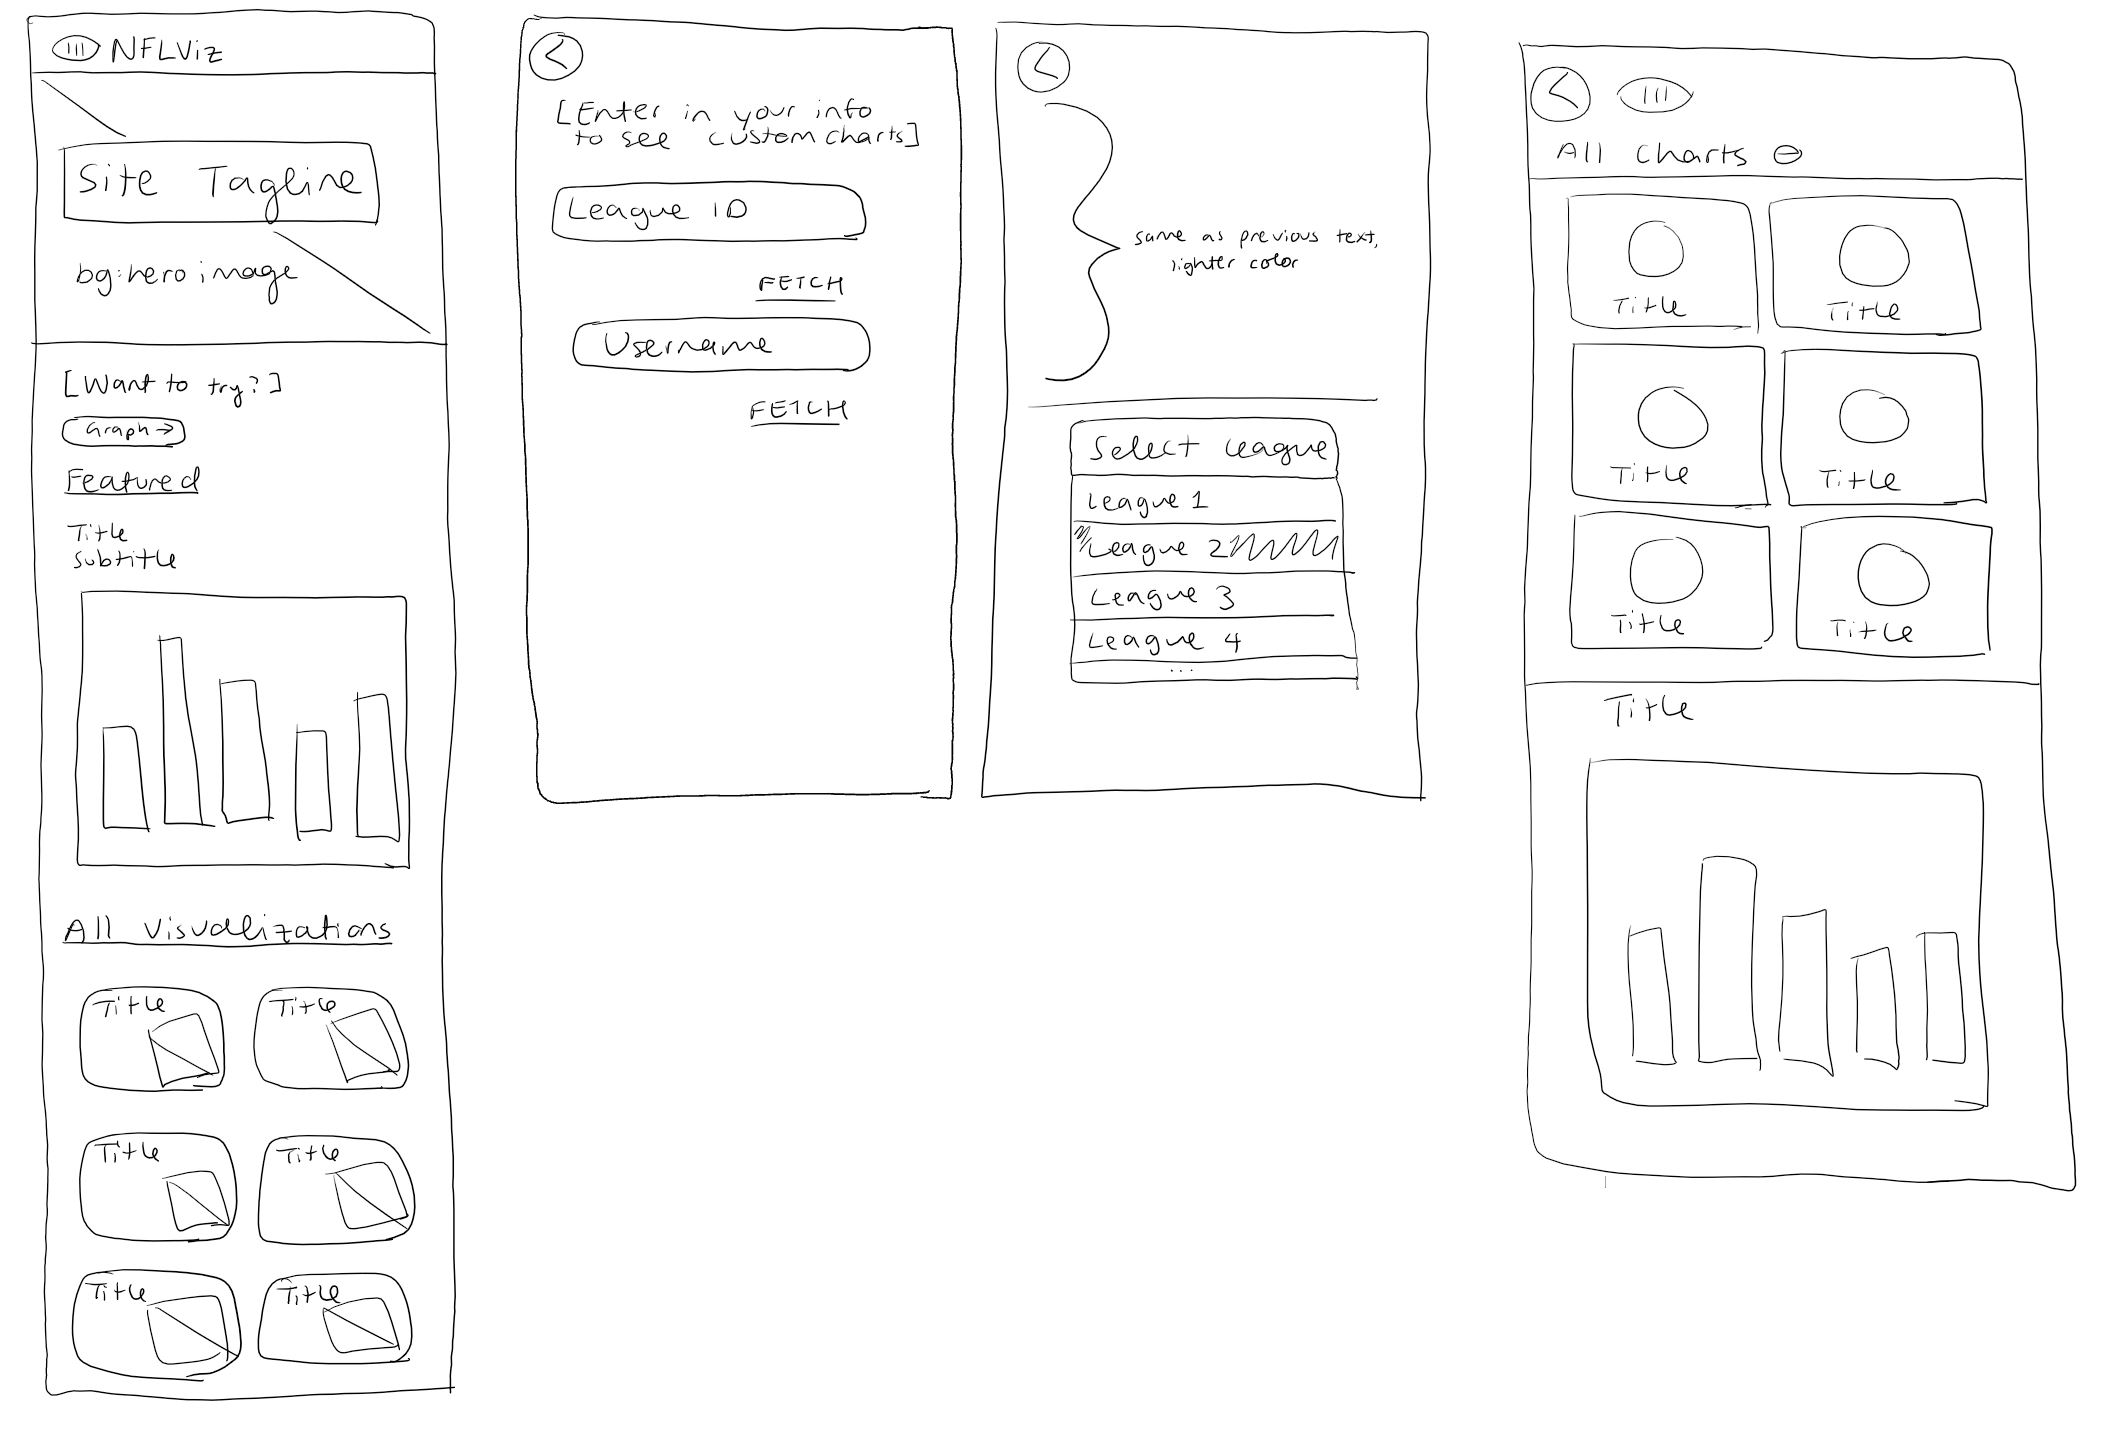 NFLViz
Site Tagline
bg:hero image
[Want to try?]
Graph →
Featured
Title
Subtitle
All Visualizations
Title
Title
Title
Title
Title
Title
[Enter in your info
to see custom charts]
League ID
FETCH
Username
FETCH
same as previous text,
lighter color
Select League
League 1
League 2
League 3
League 4
...
All Charts
Title
Title
Title
Title
Title
Title
Title